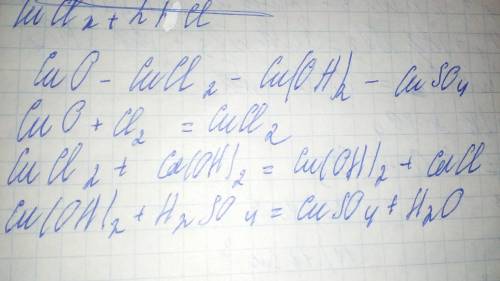 CuO - CuCl2 - Cu(OH)2 - CuSO4
CuO + Cl2 = CuCl2
CuCl2 + Ca(OH)2 = Cu(OH)2 + CaCl
Cu(OH)2 + H2SO4 = CuSO4 + H2O